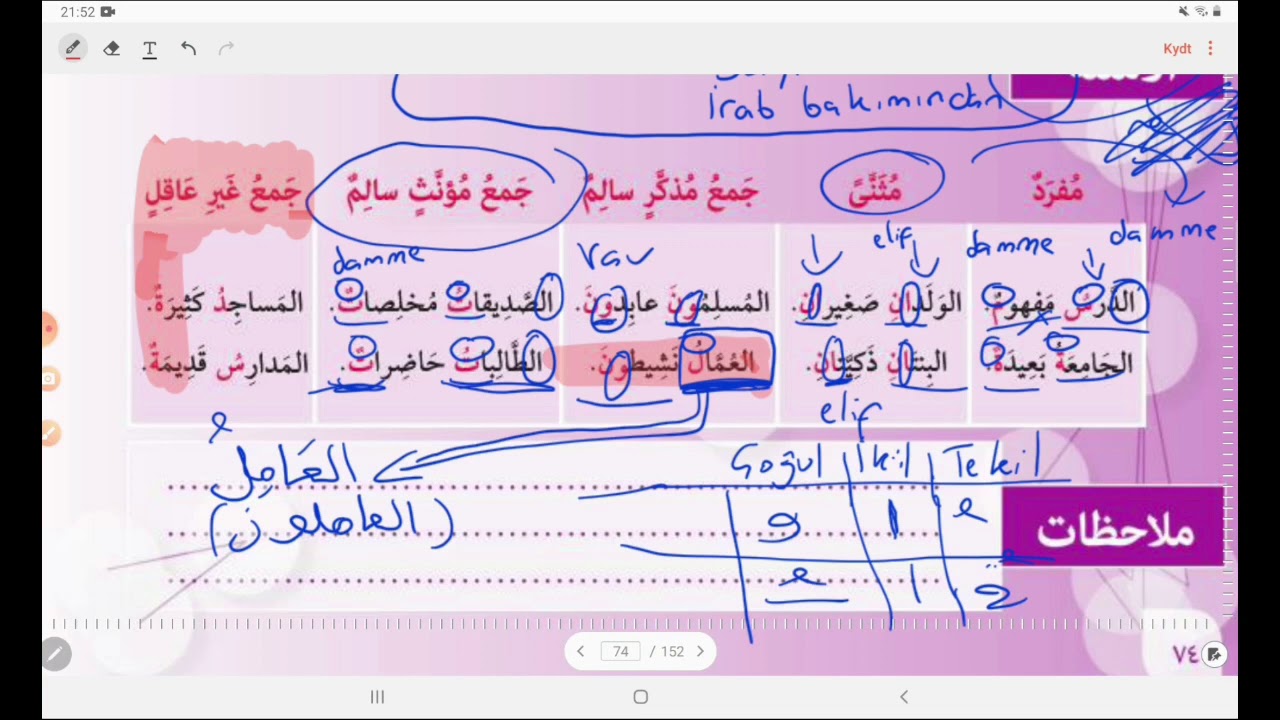 21:52
Kydt
irab bakımından
مُفرَدٌ مُثَنَّىً جَمعُ مُذكَّرٍ سالِمٌ جَمعُ مُؤنَّثٍ سالِمٌ جَمعُ غَيرِ عَاقِلٍ
damme damme elif vav damme
الدَّرسُ مَفهومٌ. الوَلَدانِ صَغيرانِ. المُسلِمُونَ عابِدونَ. الصَّديقاتُ مُخلِصاتٌ. المَساجِدُ كَثِيرَةٌ.
الجَامِعَةُ بَعِيدَةٌ. البِنتَانِ ذَكِيَّتانِ. العُمَّالُ نَشِيطونَ. الطَّالِباتُ حَاضِراتٌ. المَدارِسُ قَدِيمَةٌ.
elif
العَامِلُ
(العاملون)
Tekil İkil Çoğul
ا و
ا
ملاحظات
74 / 152
٧٤